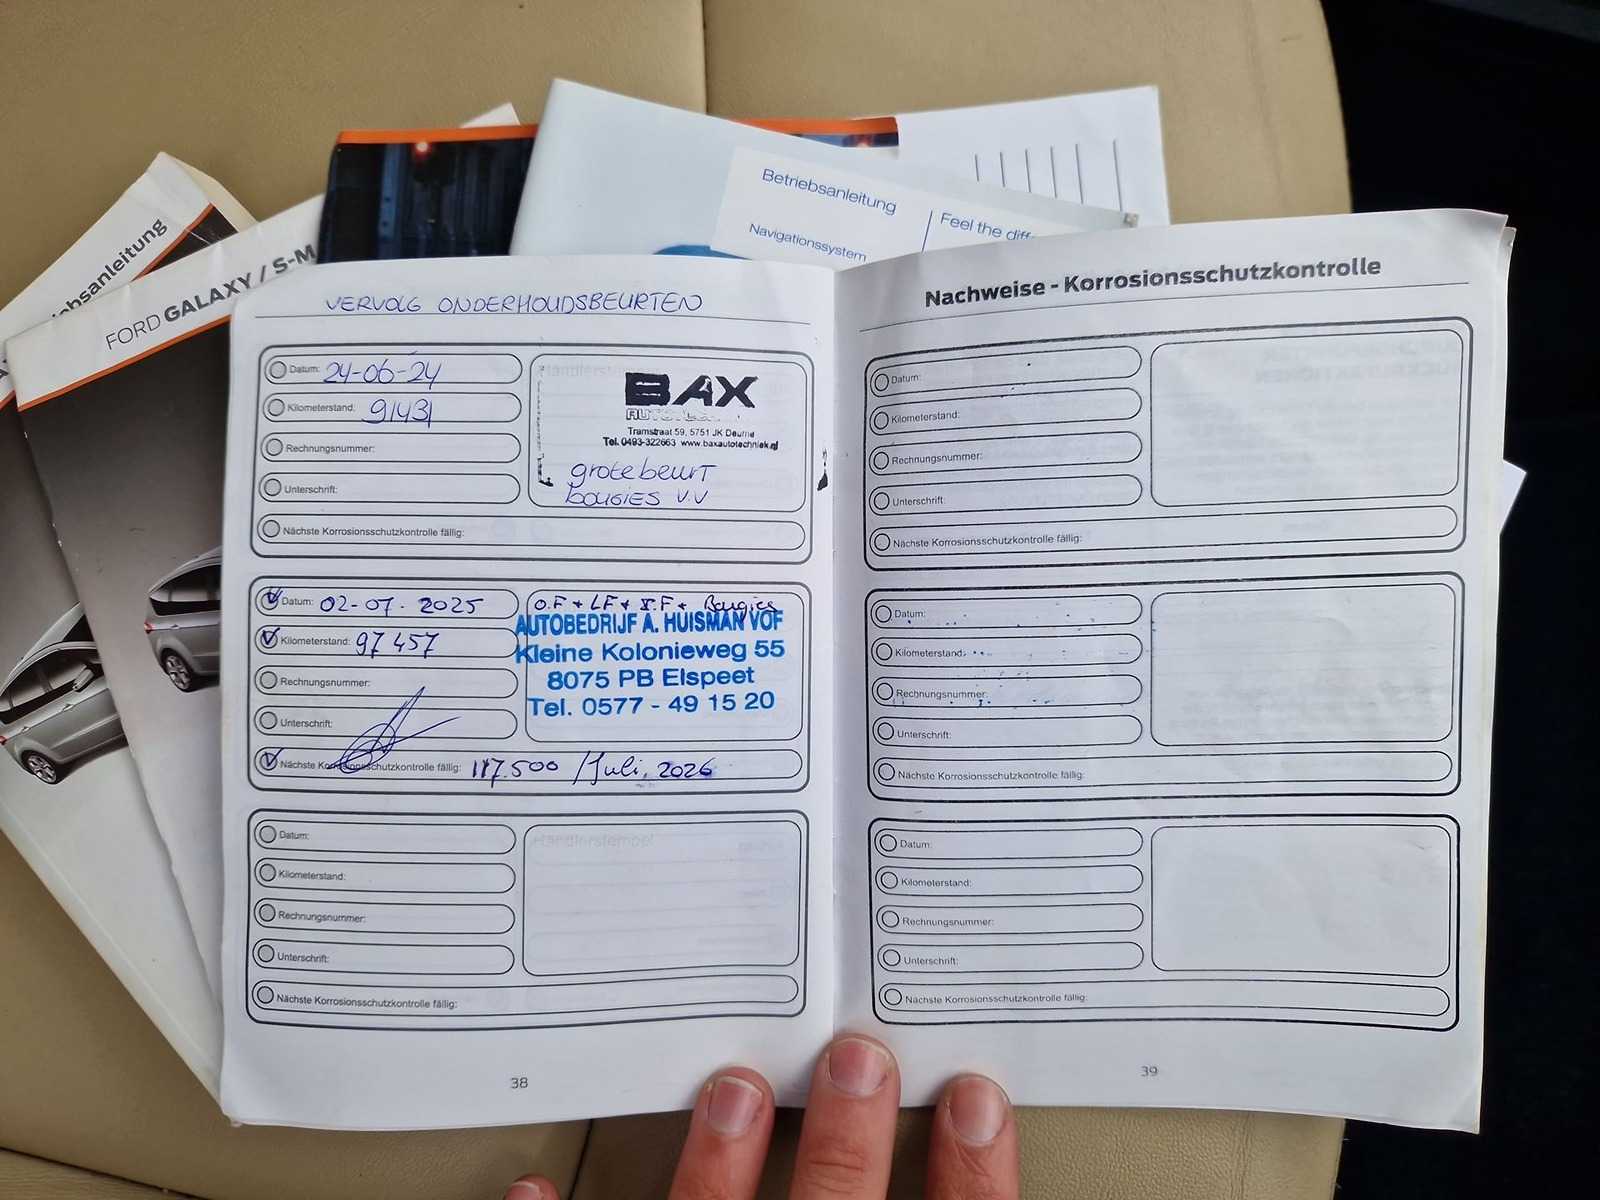 Betriebsanleitung
Navigationssystem
Feel the
bsanleitung
FORD GALAXY / S-M
VERVOLG ONDERHOUDSBEURTEN
Datum: 24-06-24
Kilometerstand: 91431
Rechnungsnummer:
Unterschrift:
Nächste Korrosionsschutzkontrolle fällig:
Händlerstempel
BAX
Tramstraat 59, 5751 JK Deurne
Tel. 0493-322663 www.baxautotechniek.nl
grote beurt
bougies v.v
Datum: 02-07-2025
Kilometerstand: 97457
Rechnungsnummer:
Unterschrift:
Nächste Korrosionsschutzkontrolle fällig: 117.500 / Juli, 2026
O.F + LF + I.F + Bougies
AUTOBEDRIJF A. HUISMAN VOF
Kleine Kolonieweg 55
8075 PB Elspeet
Tel. 0577 - 49 15 20
Datum:
Kilometerstand:
Rechnungsnummer:
Unterschrift:
Nächste Korrosionsschutzkontrolle fällig:
Händlerstempel
38
Nachweise - Korrosionsschutzkontrolle
Datum:
Kilometerstand:
Rechnungsnummer:
Unterschrift:
Nächste Korrosionsschutzkontrolle fällig:
Datum:
Kilometerstand:
Rechnungsnummer:
Unterschrift:
Nächste Korrosionsschutzkontrolle fällig:
Datum:
Kilometerstand:
Rechnungsnummer:
Unterschrift:
Nächste Korrosionsschutzkontrolle fällig:
39